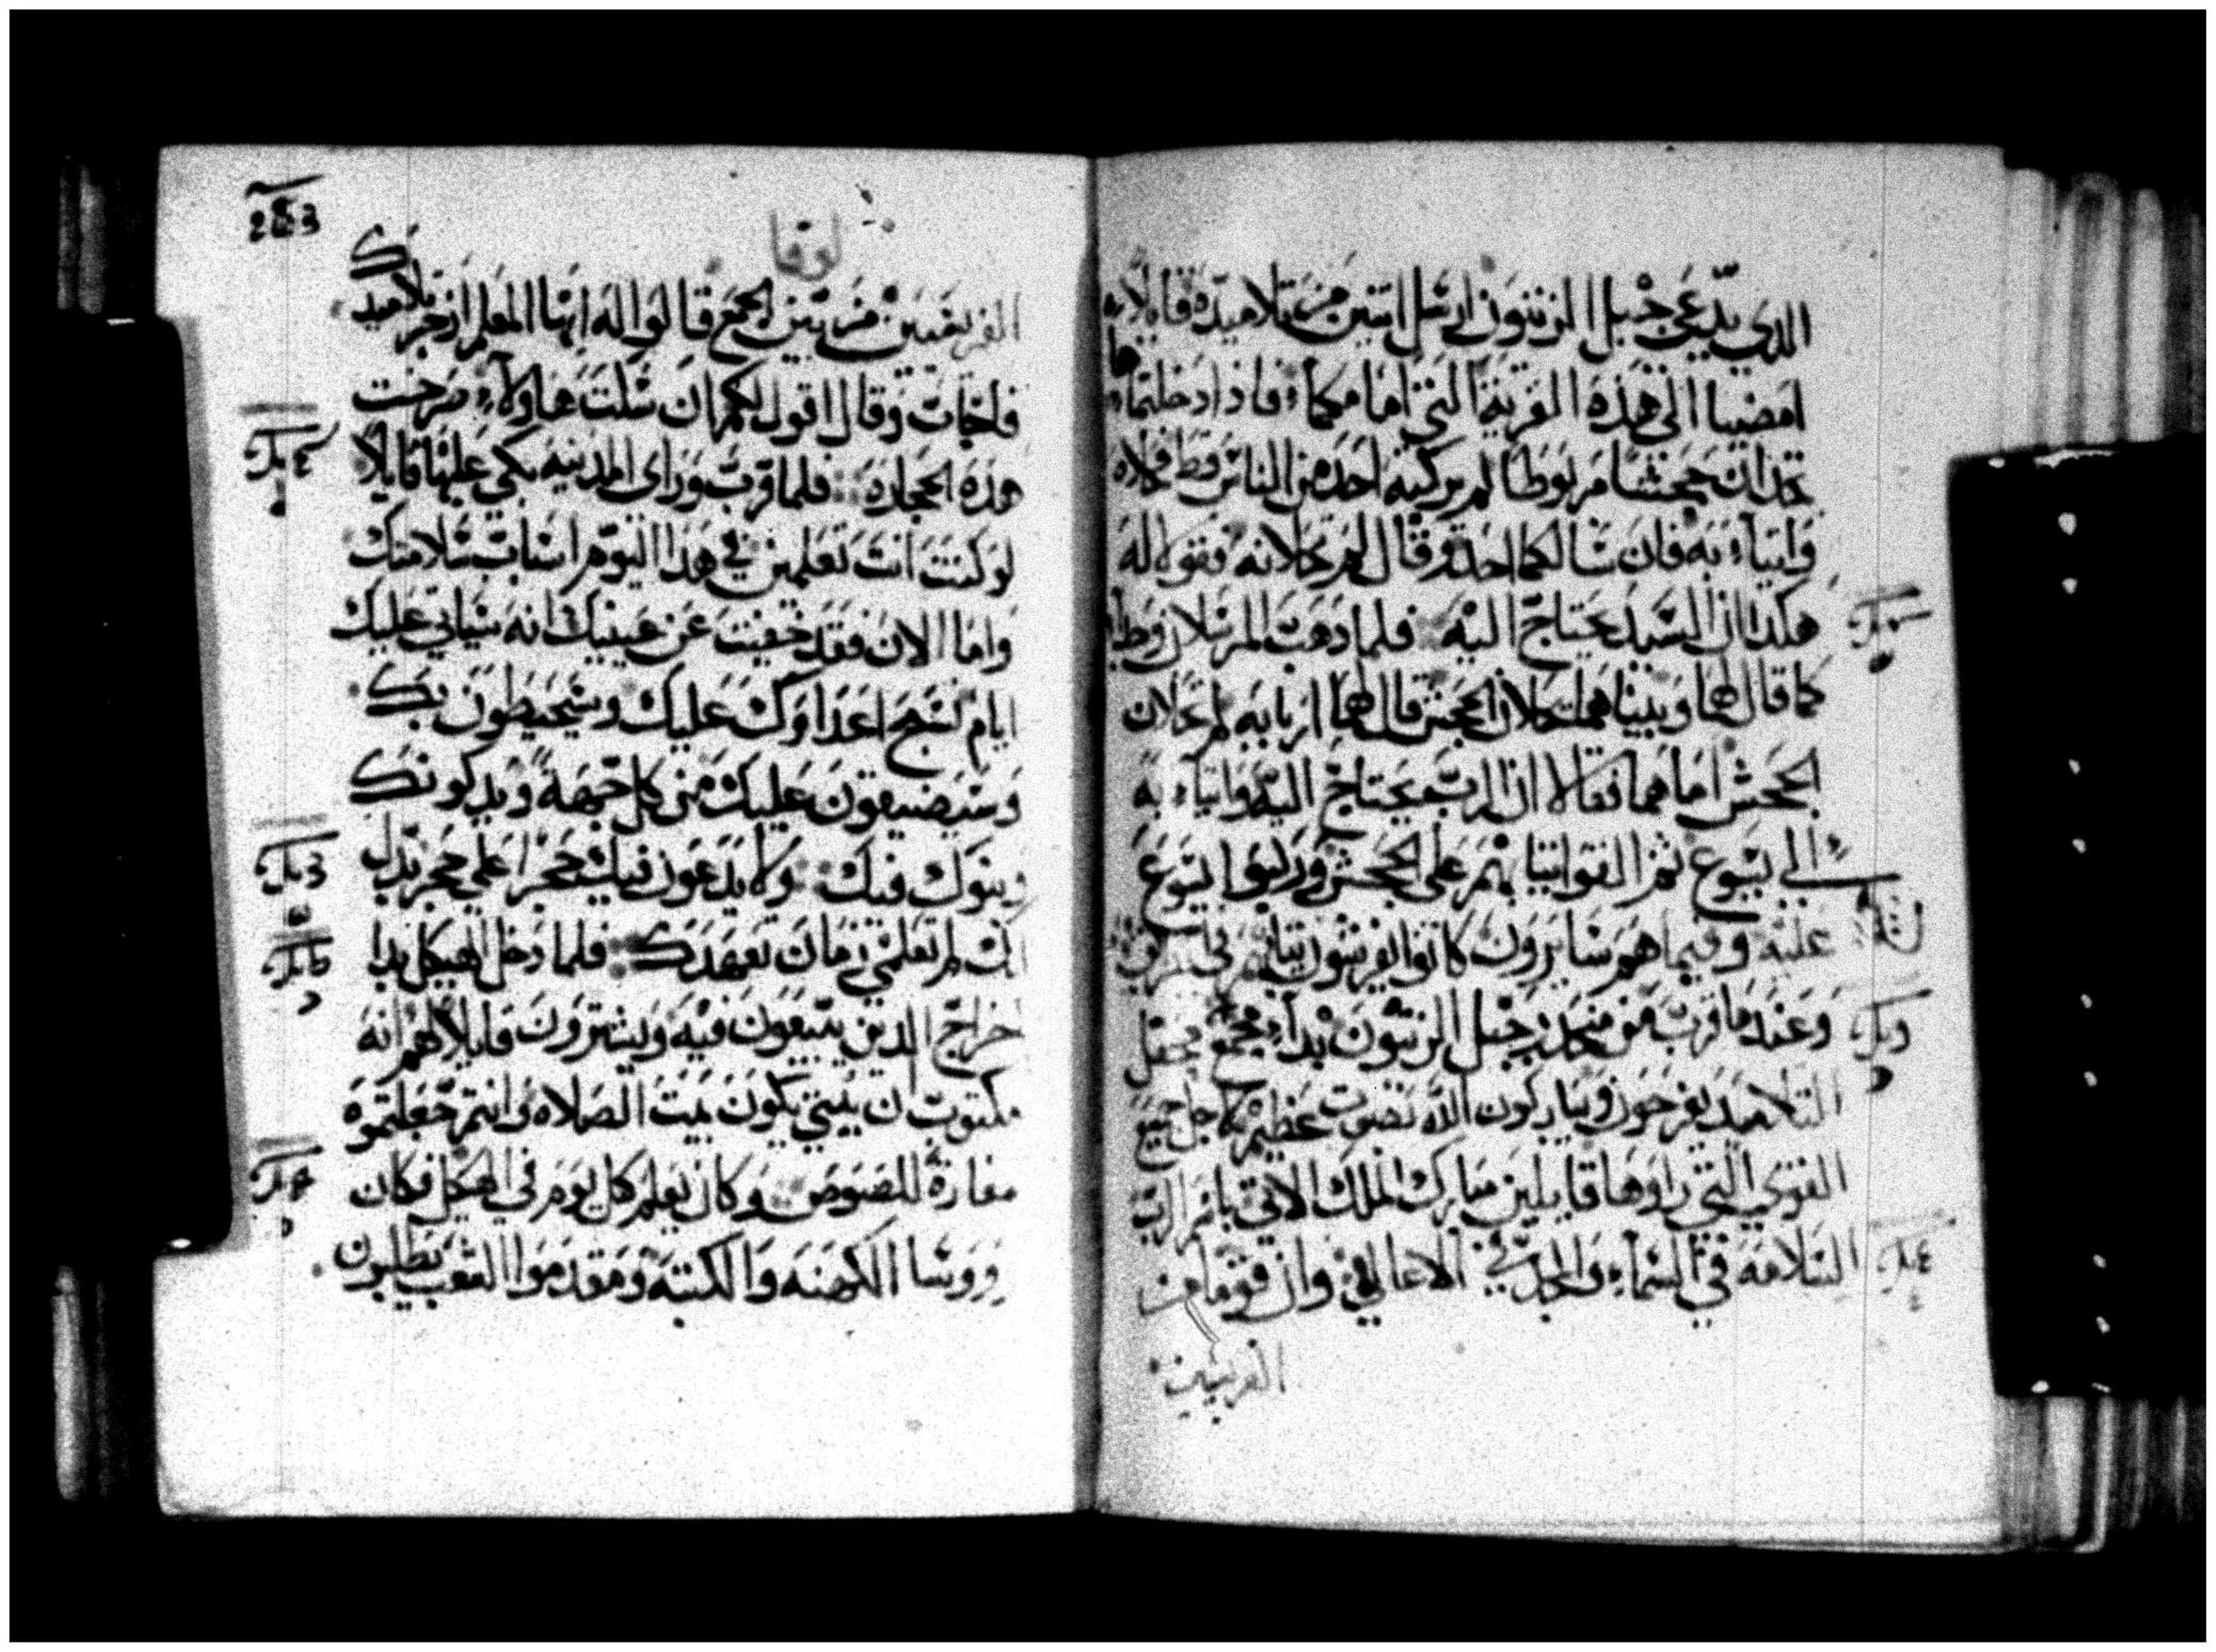 الذي يدعى جبل الزيتون ارسل اتنين من تلاميذه قايلا
امضيا الى هذه القرية التي امامكما فاذا دخلتماها
تجدان جحشا مربوطا لم يركبه احد من الناس قط فحلاه
واتياء به فان سالكما احد وقال لم تحلانه فقولا له
هكذا ان السيد يحتاج اليه فلما ذهب المرسلان وجدا
كما قال لهما وبينما هما يحلان الجحش قال لهما اربابه لم تحلان
الجحش اما هما فقالا ان الرب يحتاج اليه واتياء به
الى يسوع ثم القوا تيابهم على الجحش وركبوا يسوع
عليه وفيما هم سايرون كانوا يفرشون تيابهم في الطريق
وعند ما قرب من منحدر جبل الزيتون بداء جميع محفل
التلاميد يفرحون ويباركون الله بصوت عظيم لاجل جميع
القوى التي راوها قايلين مبارك الملك الاتي باسم الرب
السلامه في السماء والمجد في الاعالي وان قوما من
الفريسين
لوقا
الفريسيين من بين الجمع قالوا له ايها المعلم ازجر تلاميدك
فاجاب وقال اقول لكم ان سكت هاولاء صرخت
هذه الحجاره فلما قرب وراى المدينه بكى عليها قايلا
لو كنت انت تعلمين في هذا اليوم اسباب سلامتك
واما الان فقد خفيت عن عينيك انه سياتي عليك
ايام تنتهج اعداوك عليك وسيحيطون بك
وسيضيقون عليك من كل جهة ويدكونك
وبنوك فيك ولا يدعون فيك حجرا على حجر بدل
انك لم تعلمي زمان تعهدك فلما دخل الهيكل بدا
اخراج الدين يبيعون فيه ويشترون قايلا لهم انه
مكتوب ان بيتي يكون بيت الصلاه وانتم جعلتموه
مغارة للصوص وكان يعلم كل يوم في الهيكل فكان
روسا الكهنه والكتبه ومقدموا الشعب يطلبون